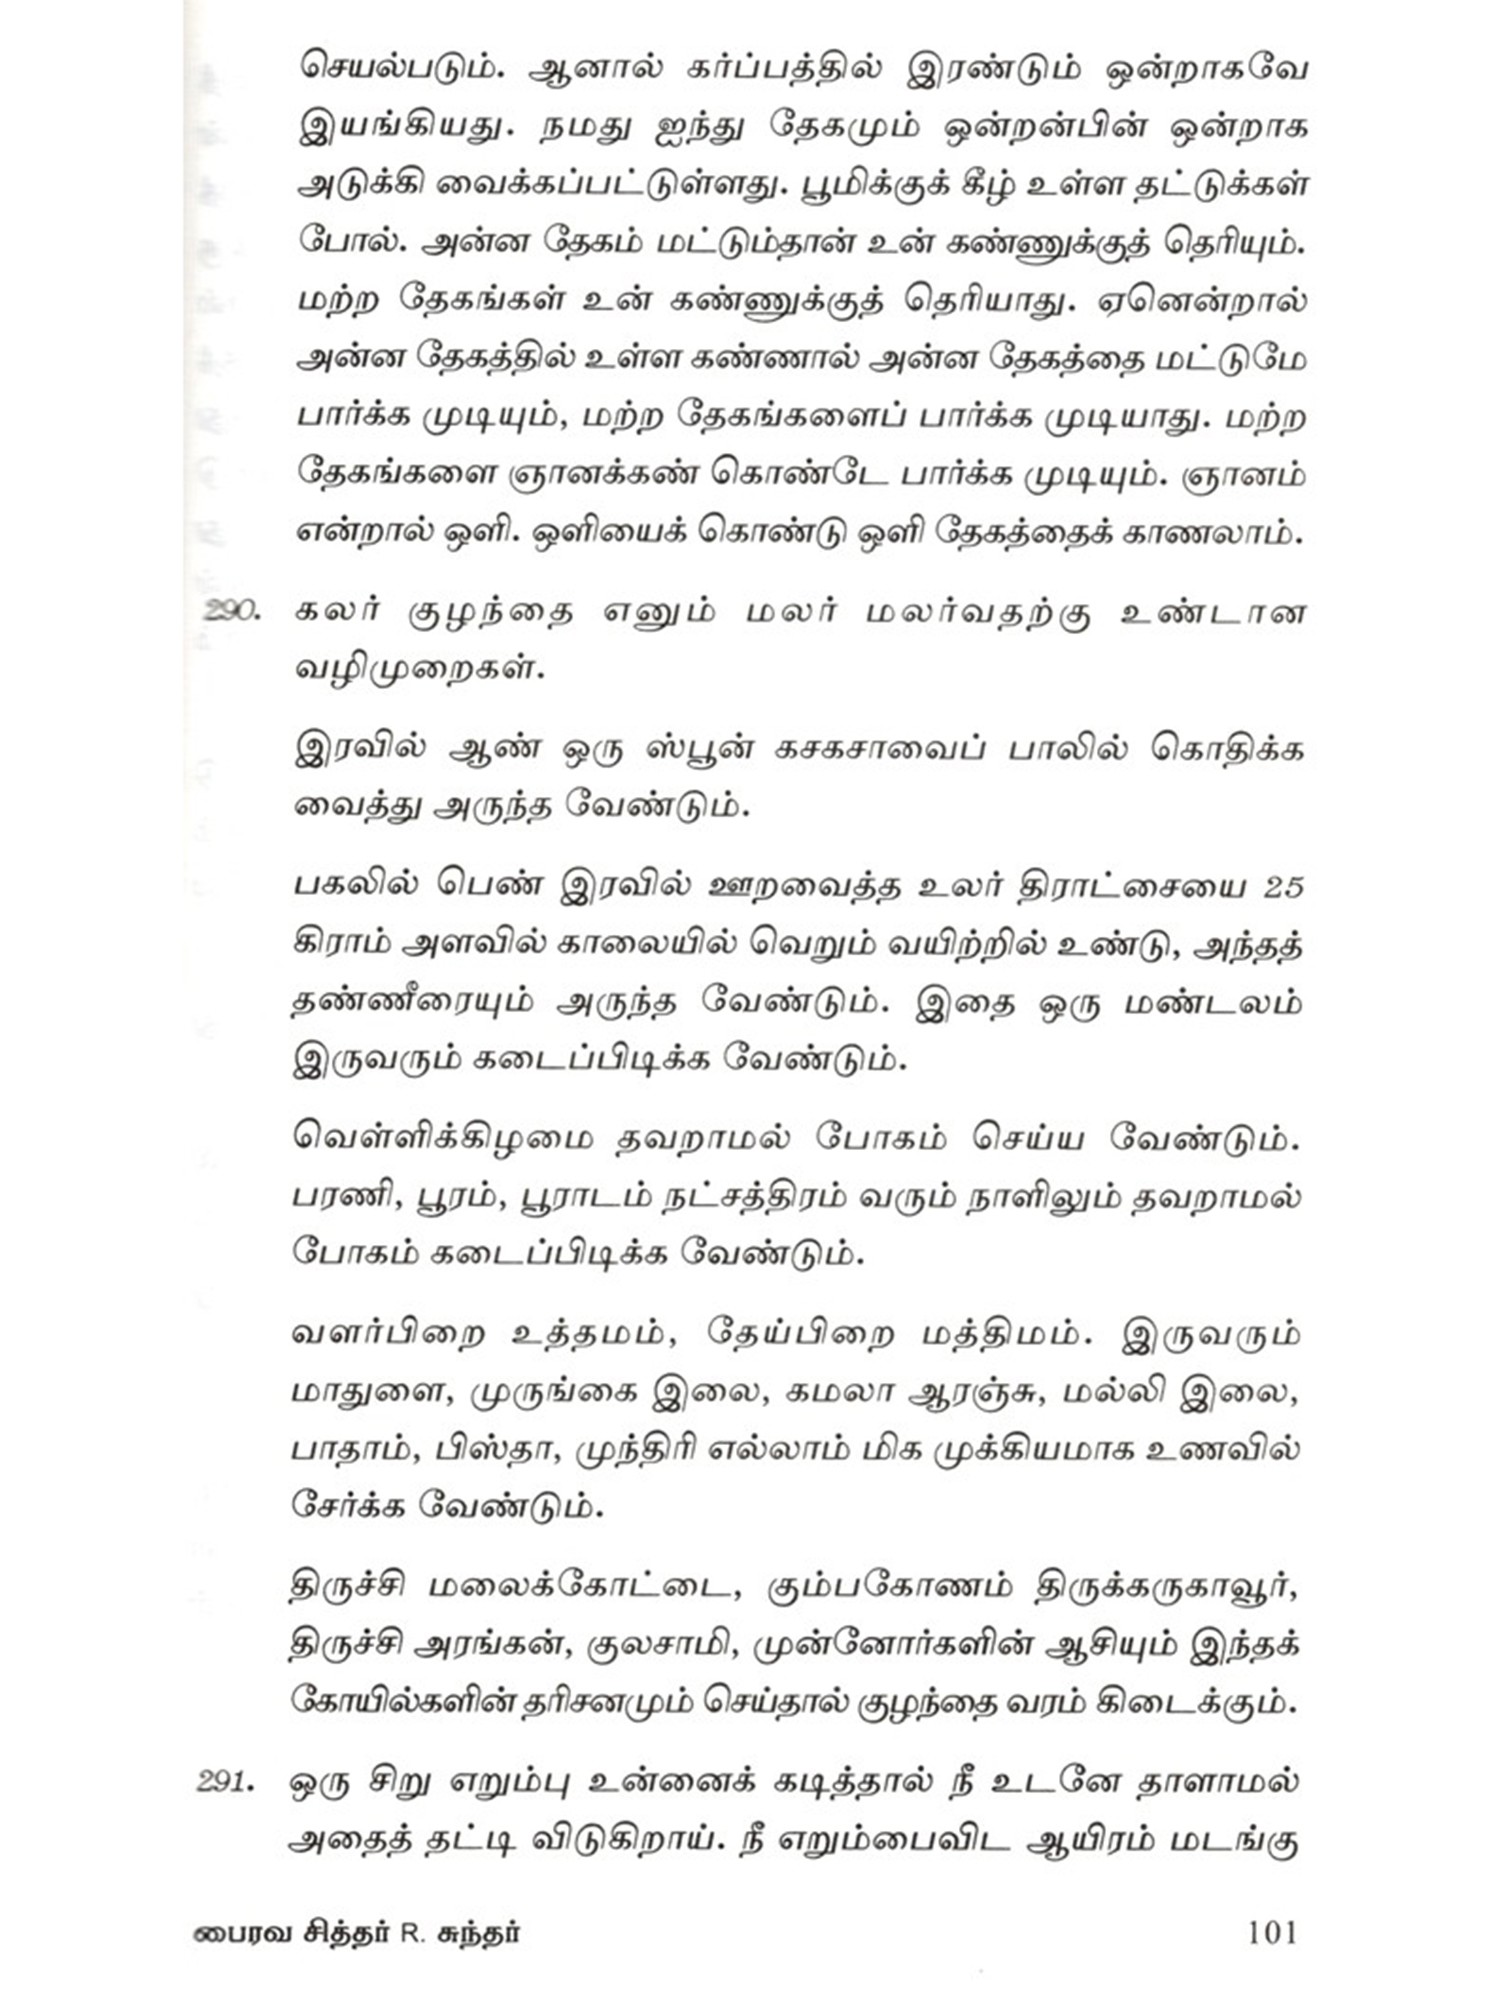 செயல்படும். ஆனால் கர்ப்பத்தில் இரண்டும் ஒன்றாகவே
இயங்கியது. நமது ஐந்து தேகமும் ஒன்றன்பின் ஒன்றாக
அடுக்கி வைக்கப்பட்டுள்ளது. பூமிக்குக் கீழ் உள்ள தட்டுக்கள்
போல். அன்ன தேகம் மட்டும்தான் உன் கண்ணுக்குத் தெரியும்.
மற்ற தேகங்கள் உன் கண்ணுக்குத் தெரியாது. ஏனென்றால்
அன்ன தேகத்தில் உள்ள கண்ணால் அன்ன தேகத்தை மட்டுமே
பார்க்க முடியும், மற்ற தேகங்களைப் பார்க்க முடியாது. மற்ற
தேகங்களை ஞானக்கண் கொண்டே பார்க்க முடியும். ஞானம்
என்றால் ஒளி. ஒளியைக் கொண்டு ஒளி தேகத்தைக் காணலாம்.
290. கலர் குழந்தை எனும் மலர் மலர்வதற்கு உண்டான
வழிமுறைகள்.
இரவில் ஆண் ஒரு ஸ்பூன் கசகசாவைப் பாலில் கொதிக்க
வைத்து அருந்த வேண்டும்.
பகலில் பெண் இரவில் ஊறவைத்த உலர் திராட்சையை 25
கிராம் அளவில் காலையில் வெறும் வயிற்றில் உண்டு, அந்தத்
தண்ணீரையும் அருந்த வேண்டும். இதை ஒரு மண்டலம்
இருவரும் கடைப்பிடிக்க வேண்டும்.
வெள்ளிக்கிழமை தவறாமல் போகம் செய்ய வேண்டும்.
பரணி, பூரம், பூராடம் நட்சத்திரம் வரும் நாளிலும் தவறாமல்
போகம் கடைப்பிடிக்க வேண்டும்.
வளர்பிறை உத்தமம், தேய்பிறை மத்திமம். இருவரும்
மாதுளை, முருங்கை இலை, கமலா ஆரஞ்சு, மல்லி இலை,
பாதாம், பிஸ்தா, முந்திரி எல்லாம் மிக முக்கியமாக உணவில்
சேர்க்க வேண்டும்.
திருச்சி மலைக்கோட்டை, கும்பகோணம் திருக்கருகாவூர்,
திருச்சி அரங்கன், குலசாமி, முன்னோர்களின் ஆசியும் இந்தக்
கோயில்களின் தரிசனமும் செய்தால் குழந்தை வரம் கிடைக்கும்.
291. ஒரு சிறு எறும்பு உன்னைக் கடித்தால் நீ உடனே தாளாமல்
அதைத் தட்டி விடுகிறாய். நீ எறும்பைவிட ஆயிரம் மடங்கு
பைரவ சித்தர் R. சுந்தர் 101